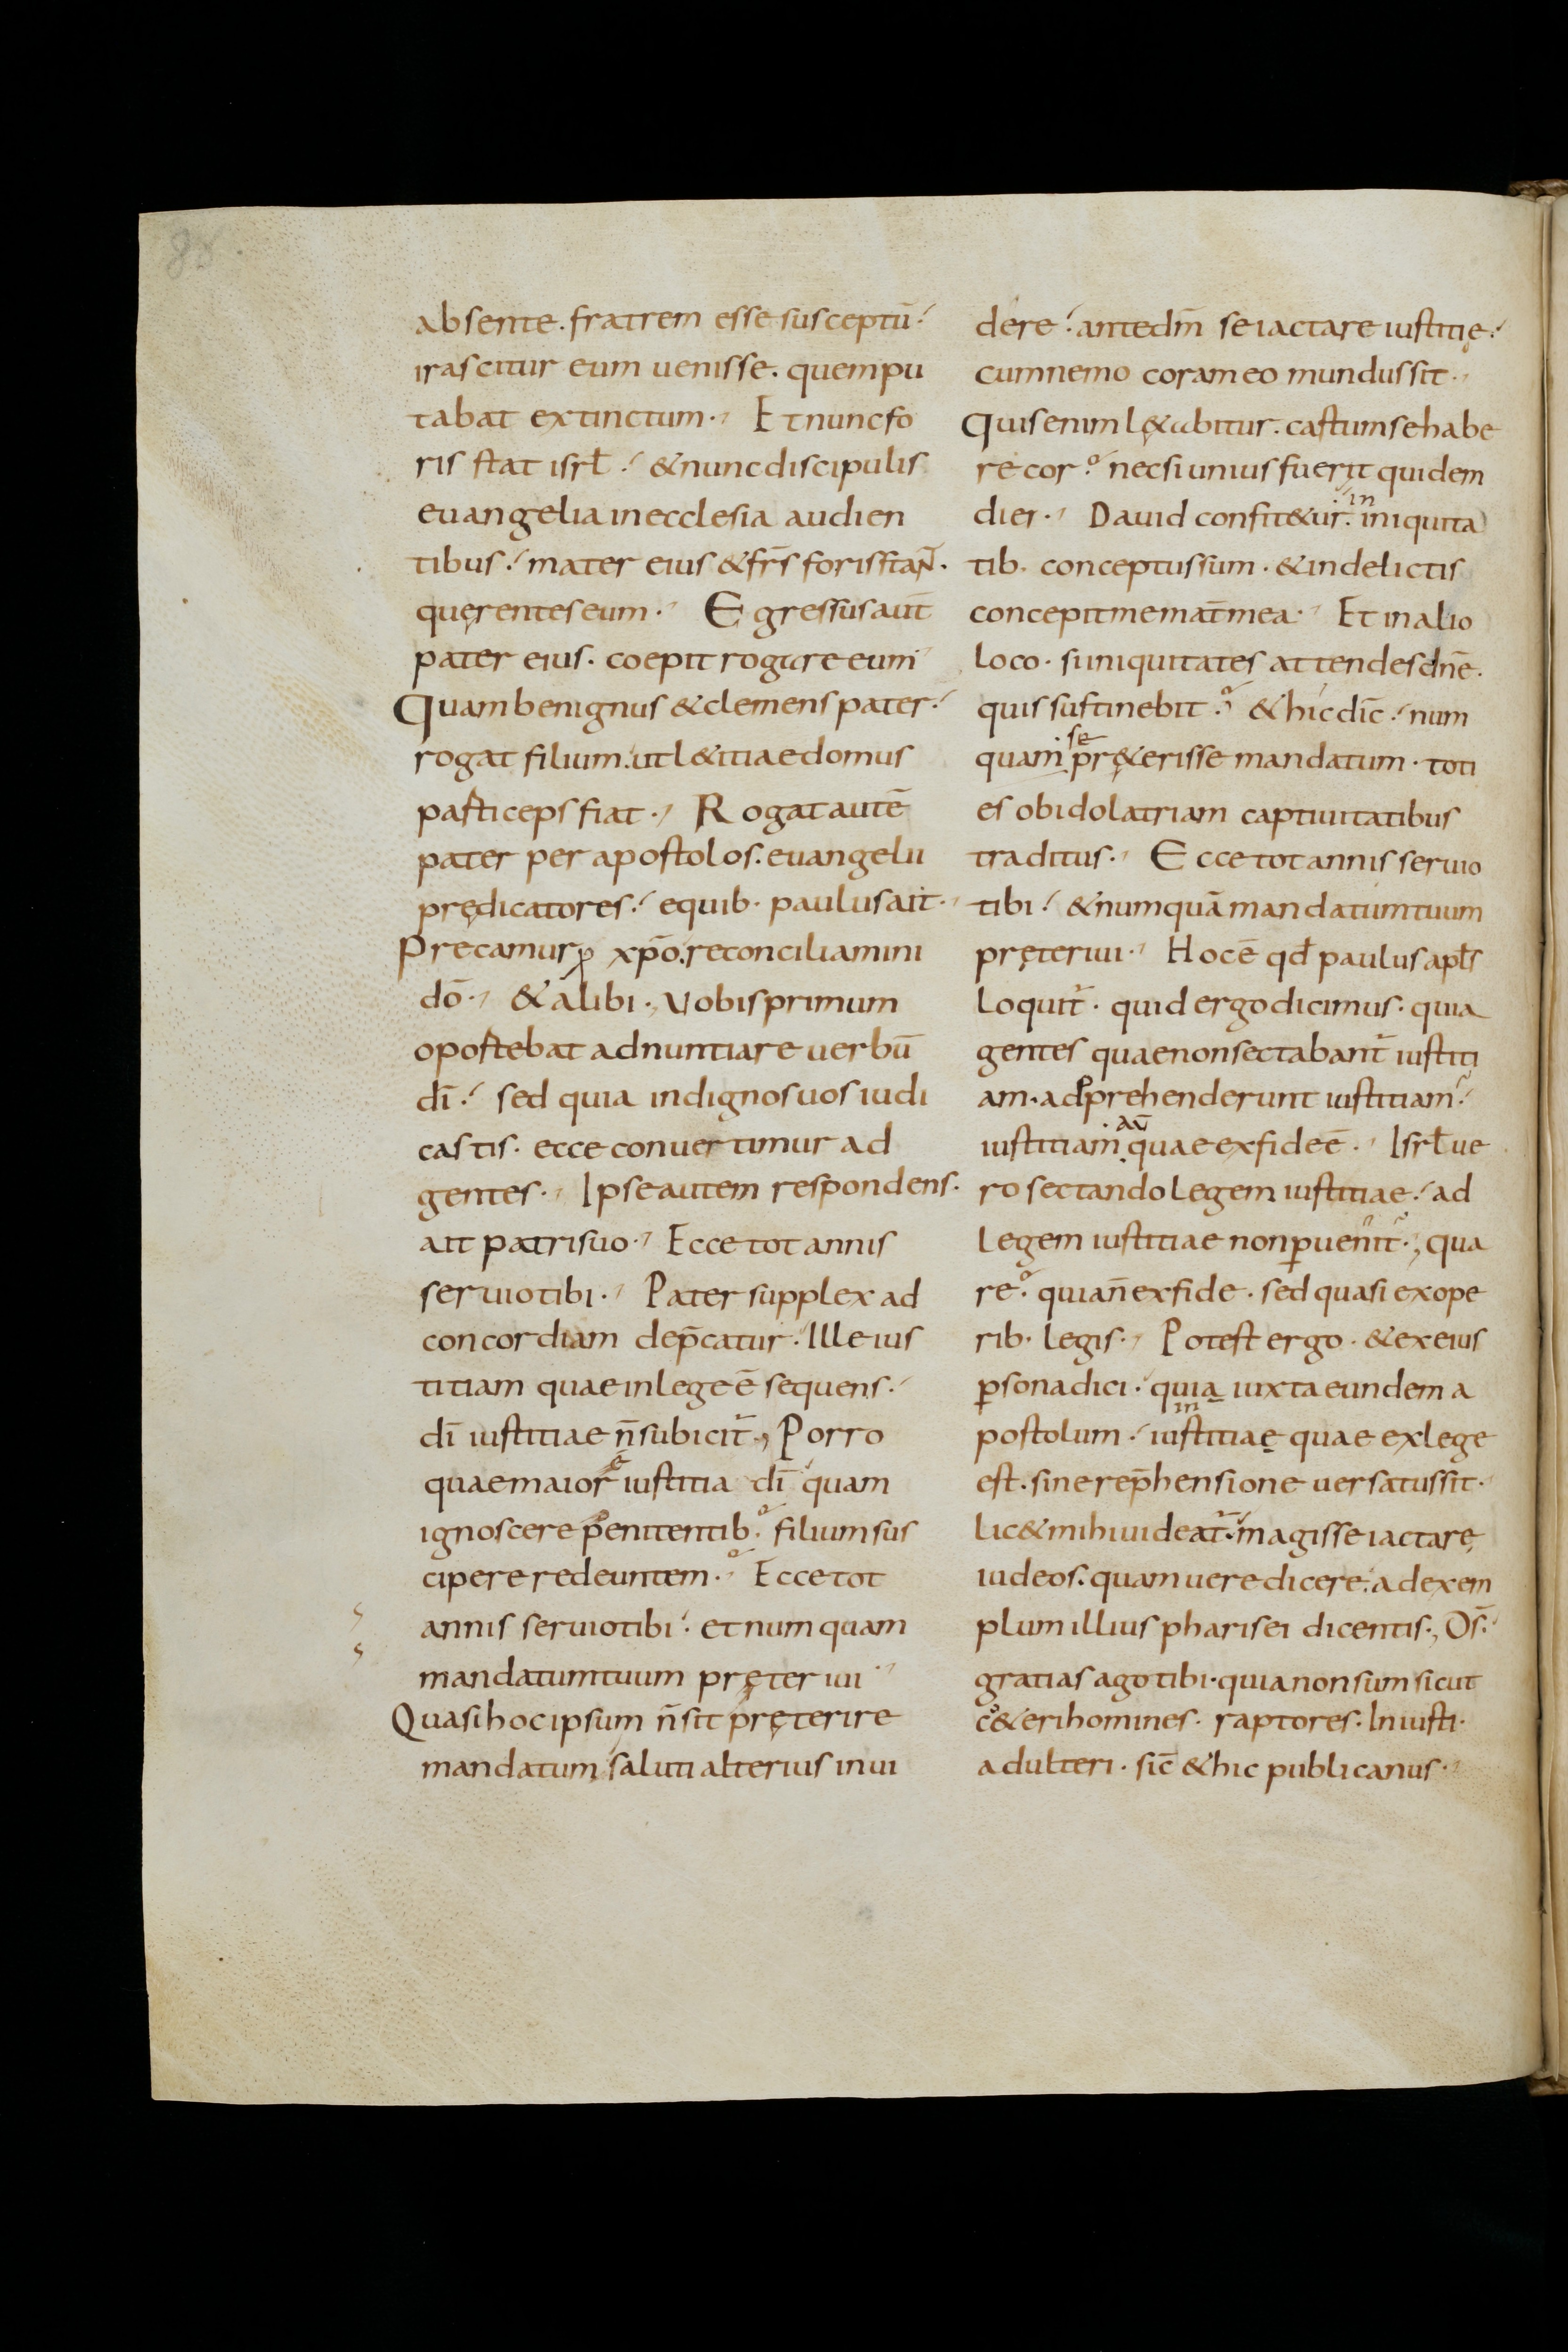 88
absente. fratrem esse susceptū·
irascitur eum uenisse. quem pu
tabat extinctum· Et nunc fo
ris stat isrł· & nunc discipulis
euangelia in ecclesia audien
tibus· mater eius & frs̄ foris stant̄·
quęrentes eum· Egressus aut̄
pater eius· coepit rogare eum
Quam benignus & clemens pater·
rogat filium. ut l&itiae domus
particeps fiat· Rogat autē
pater per apostolos. euangelii
prędicatores· equib· paulus ait·
Precamur p xp̄o. reconciliamini
dō· & alibi· Uobis primum
oportebat adnuntiare uerbū
dī· sed quia indignos uos iudi
castis· ecce conuertimur ad
gentes· Ipse autem respondens·
ait patri suo· Ecce tot annis
seruio tibi· Pater supplex ad
concordiam dep̄catur· Ille ius
titiam quae in lege ē sequens·
dī iustitiae n̄ subicit̄· Porro
quae maior ē iustitia dī quam
ignoscere poenitentib· filium sus
cipere redeuntem· Ecce tot
annis seruio tibi· et num quam
mandatum tuum pręteriui·
Quasi hoc ipsum n̄ sit pręterire
mandatum, saluti alterius inui
dere· ante dm̄ se iactare iustitię·
cum nemo coram eo mundus sit·
Quis enim lę&abitur. castum se habe
re cor· nec si unius fuerit quidem
diei· Dauid confit&ur. in iniquita
tib· conceptus sum· & in delictis
concepit me mat̄ mea· Et in alio
loco· si iniquitates attendes dn̄e·
quis sustinebit· & hic dic̄· num
quam se prę&erisse mandatum· toti
es ob idolatriam captiuitatibus
traditus· Ecce tot annis seruio
tibi· & numquā mandatum tuum
pręteriui· Hoc ē qđ paulus apłs
loquit̄· quid ergo dicimus· quia
gentes quae non sectabant̄ iustiti
am· adprehenderunt iustitiam·
iustitiam aū quae ex fide ē· Isrł ue
ro sectando legem iustitiae· ad
legem iustitiae non puenit· qua
re· quia n̄ ex fide· sed quasi ex ope
rib· legis· Potest ergo· & ex eius
psona dici· quia iuxta eundem a
postolum· in iustitiae quae ex lege
est· sine rep̄hensione uersatus sit·
lic& mihi uideat̄· magis se iactare
iudeos. quam uere dicere· ad exem
plum illius pharisei dicentis· Ds̄·
gratias ago tibi· quia non sum sicut
c&eri homines· raptores· Iniusti·
adulteri· sic̄ & hic publicanus·